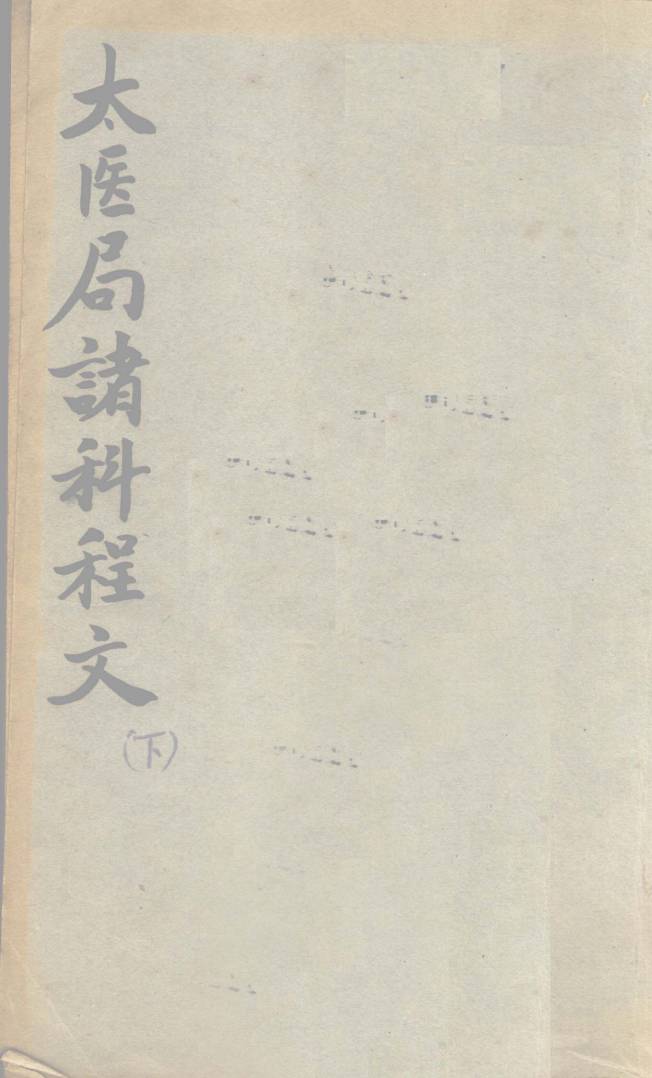 太医局諸科程文
(下)